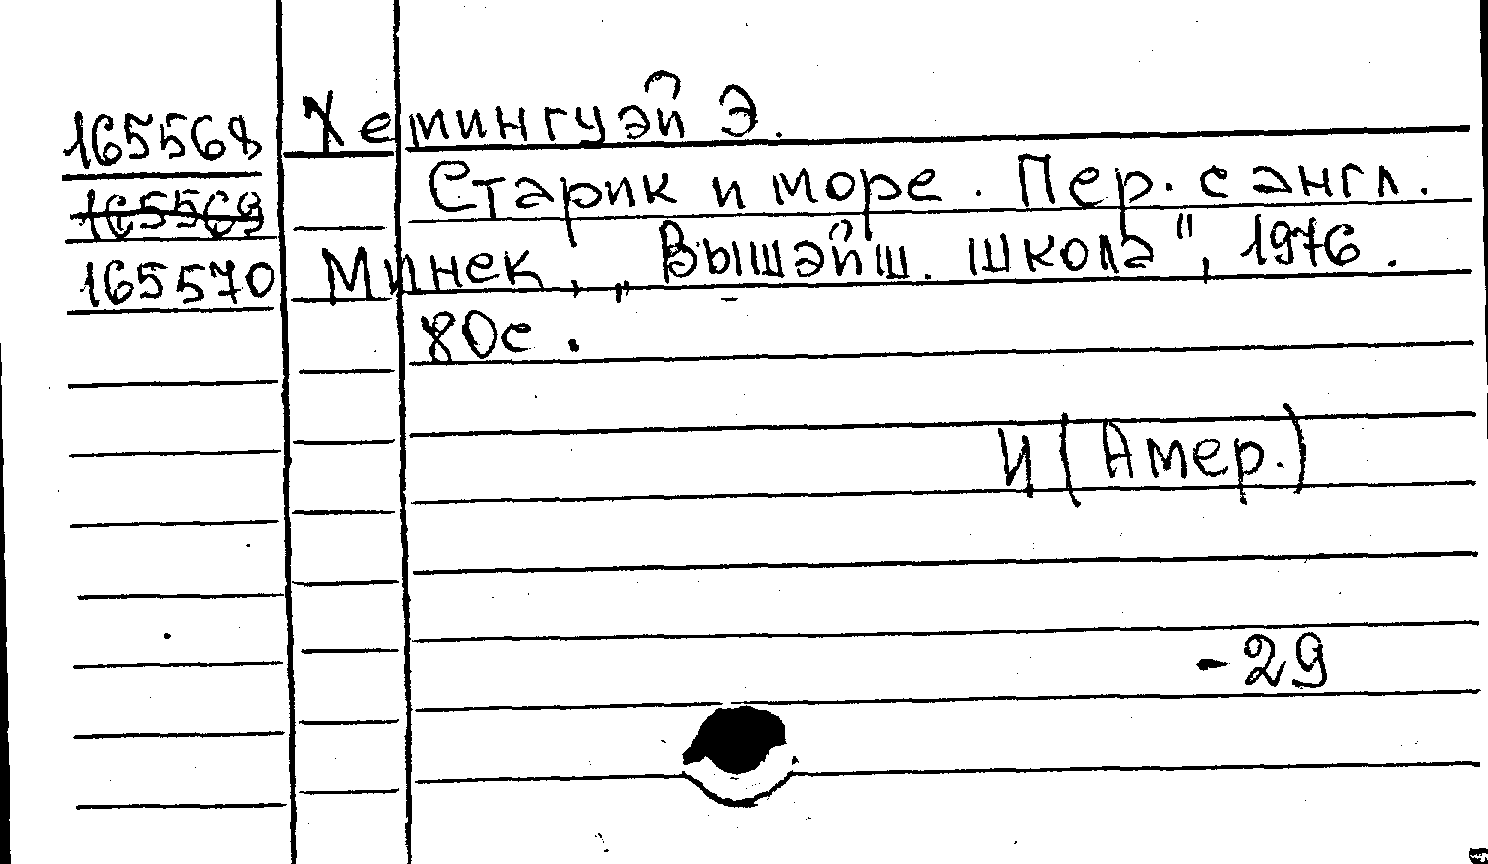 165568 Хемингуэй Э.
165569 Старик и море. Пер. с англ.
165570 Минск, „Вышэйш. школа", 1976.
80с.
И (Амер.)
-29